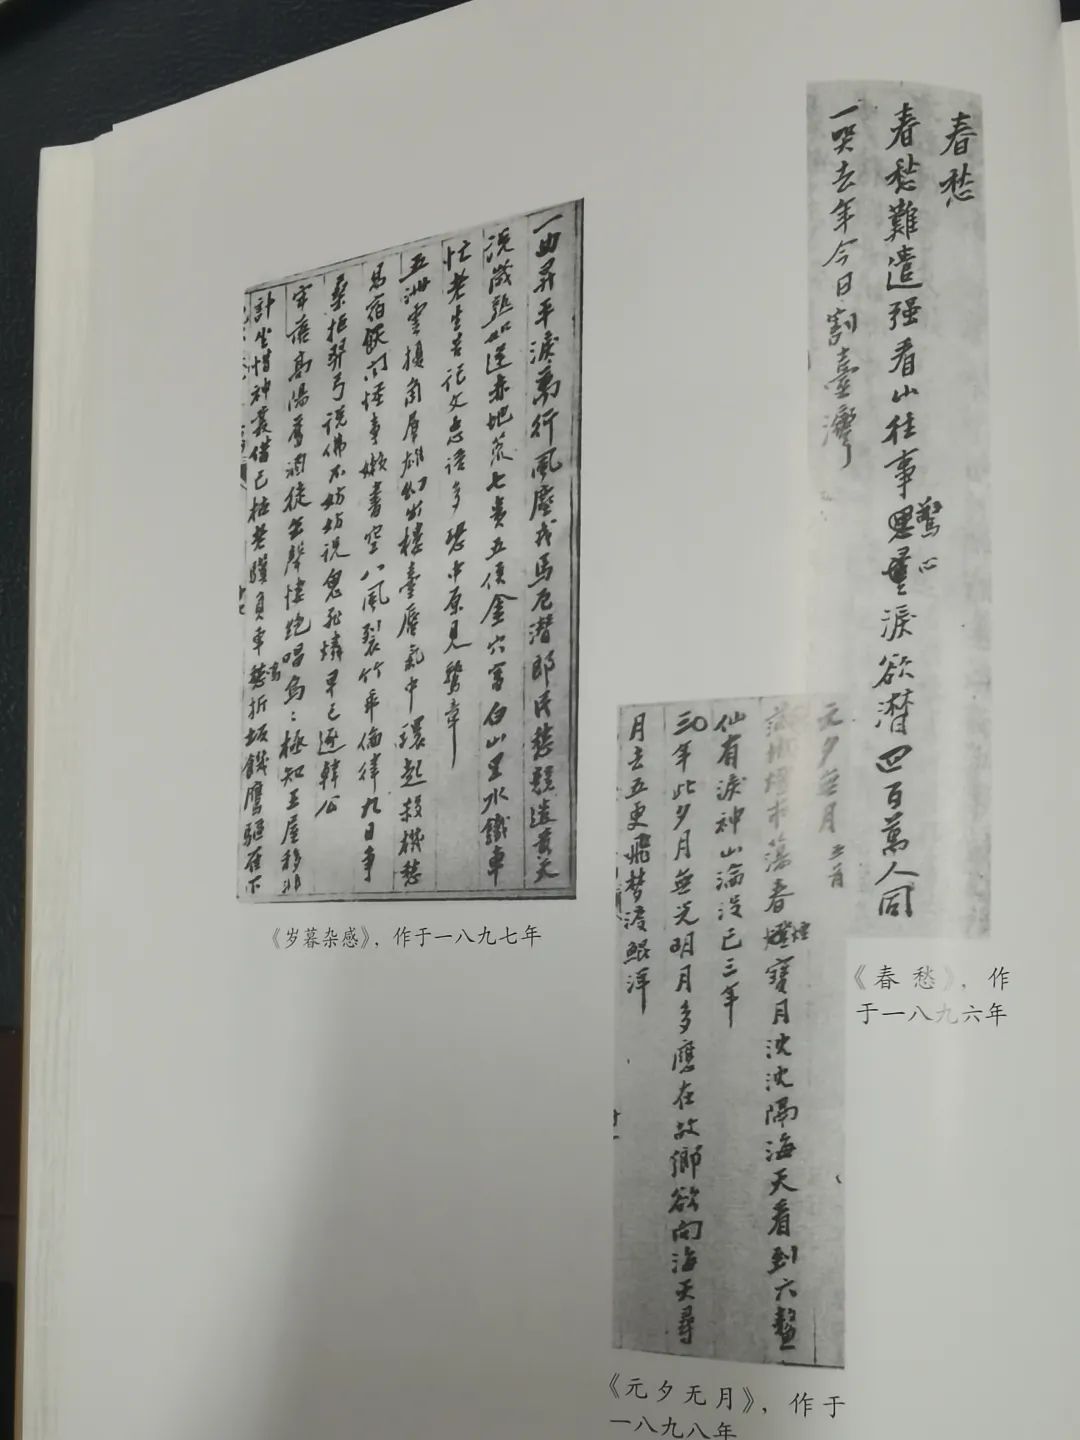 春愁
春愁難遣强看山往事思量淚欲潸四百萬人同
驚心
一哭去年今日割臺灣
《春愁》，作
于一八九六年
元夕無月 五首
滿城燈市蕩春燈寶月沈沈隔海天看到六鰲
煙
仙有淚神山淪没已三年
三年此夕月無光明月多應在故鄉欲向海天尋
月去五更飛梦渡鯤洋
《元夕无月》，作于
一八九八年
一曲昇平淚萬行風塵戎馬厄潜郎民愁競造黄天
説歲熟如逢赤地荒七貴五侯金穴富白山黑水鐵車
忙老生苦記文忘語多恐中原見驚章
五洲雲擾角群雄幻出樓臺蜃氣中環起殺機愁
易宿飫聞怪事嬾書空八風裂竹乖倫律九日争
桑拒羿弓説佛不妨妨説鬼死燐早已逐韓公
牢落高陽舊酒徒無聲悽絶唱烏烏極知王屋移非
計坐惜神叢借已枯老驥負車愁折坂饑鷹驅雀下
《岁暮杂感》，作于一八九七年